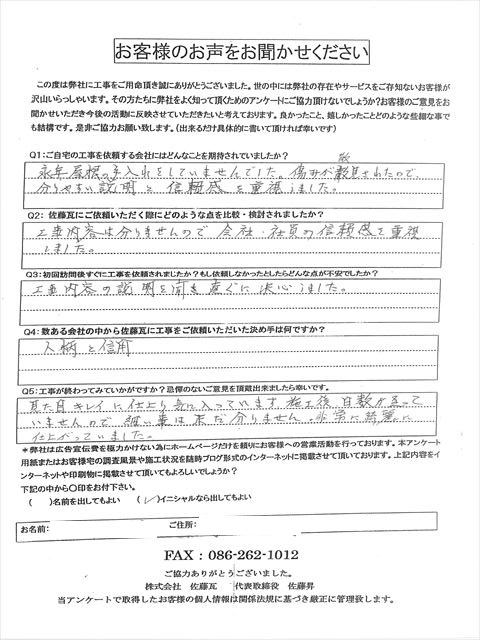 お客様のお声をお聞かせください
この度は弊社に工事をご用命頂き誠にありがとうございました。世の中には弊社の存在やサービスをご存知ないお客様が
沢山いらっしゃいます。その方たちに弊社をよく知って頂くためのアンケートにご協力頂けないでしょうか?お客様のご意見をお
聞かせいただき今後の活動に反映させていただきたいと考えております。良かったこと、嬉しかったことどのような些細な事で
も結構です。是非ご協力お願い致します。(出来るだけ具体的に書いて頂ければ幸いです)
Q1:ご自宅の工事を依頼する会社にはどんなことを期待されていましたか?
永年屋根の手入れをしていませんでした。傷みが散見されたので、
分りやすい説明と信頼感を重視しました。
Q2:佐藤瓦にご依頼いただく際にどのような点を比較・検討されましたか?
工事内容は分りませんので会社・社員の信頼感を重視
しました。
Q3:初回訪問後すぐに工事を依頼されましたか?もし依頼しなかったとしたらどんな点が不安でしたか?
工事内容の説明を聞き直ぐに決心しました。
Q4:数ある会社の中から佐藤瓦に工事をご依頼いただいた決め手は何ですか?
人柄と信用
Q5:工事が終わってみていかがですか?忌憚のないご意見を頂戴出来ましたら幸いです。
見た目キレイに仕上り気に入っています。施工後、日数が経って
いませんので細い事は未だ分りません。非常に綺麗に
仕上がっていました。
*弊社は広告宣伝費を極力かけない為にホームページだけを頼りにお客様への営業活動を行っております。本アンケート
用紙またはお客様宅の調査風景や施工状況を随時ブログ形式のインターネットに掲載させて頂いております。上記内容をイ
ンターネットや印刷物に掲載させて頂いてもよろしいでしょうか?
下記の中から〇印をお付下さい。
( )名前を出してもよい (✓)イニシャルなら出してもよい
お名前: ご住所:
FAX:086-262-1012
ご協力ありがとうございました。
株式会社 佐藤瓦 代表取締役 佐藤昇
当アンケートで取得したお客様の個人情報は関係法規に基づき厳正に管理致します。